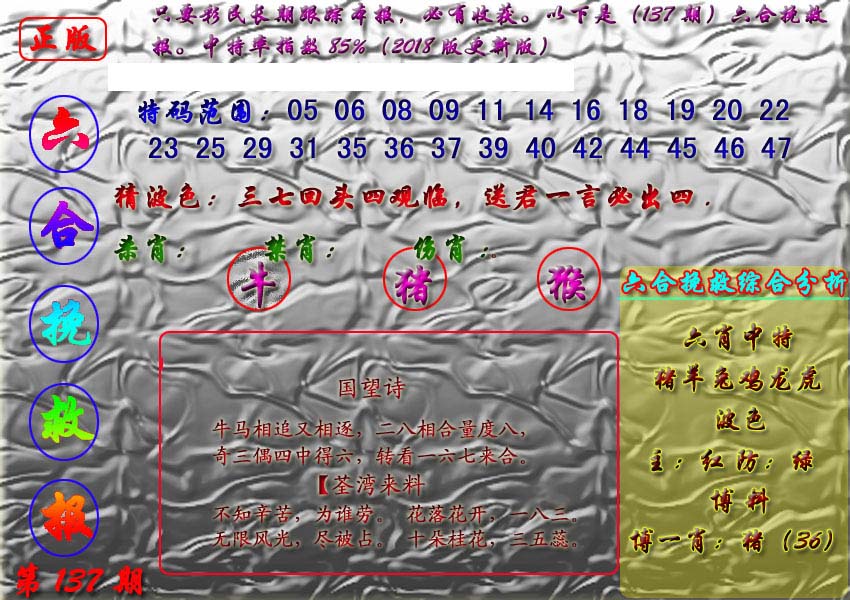 正版
只要彩民长期跟踪本报，必有收获。以下是（137期）六合挽救
报。中特率指数85%（2018版更新版）
特码范围：05 06 08 09 11 14 16 18 19 20 22
23 25 29 31 35 36 37 39 40 42 44 45 46 47
猜波色：三七回头四观临，送君一言必出四．
杀肖： 禁肖： 伤肖：
牛 猪 猴
六合挽救报
第137期
国望诗
牛马相追又相逐，二八相合量度八，
奇三偶四中得六，转看一六七来合。
【荃湾来料
不知辛苦，为谁劳。 花落花开，一八三。
无限风光，尽被占。 十朵桂花，三五蕊。
六合挽救综合分析
六肖中特
猪羊兔鸡龙虎
波色
主：红防：绿
博料
博一肖：猪（36）